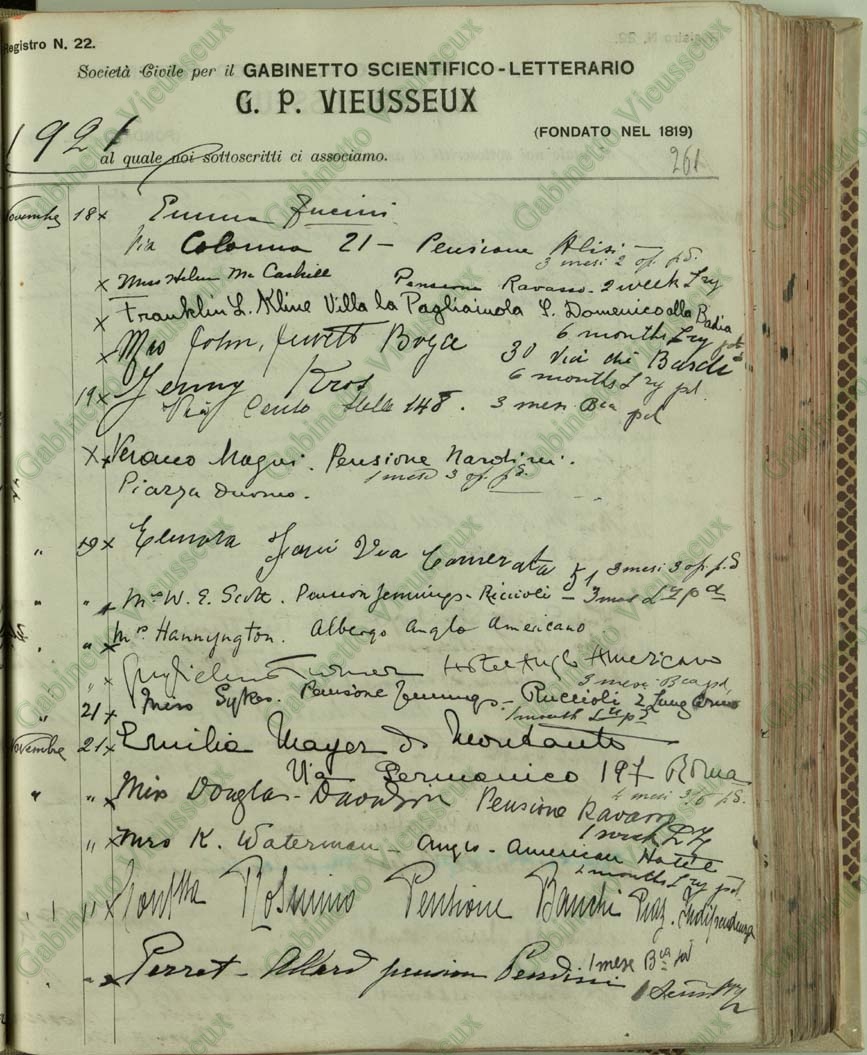 Registro N. 22.
Società Civile per il GABINETTO SCIENTIFICO-LETTERARIO
G. P. VIEUSSEUX
(FONDATO NEL 1819)
1921
al quale noi sottoscritti ci associamo.
261
Novembre 18 x Emma Fucini
Via Colonna 21 - Pensione Alisi
3 mesi 2 op. pd.
x Miss Helen Mc Caskill Pensione Ravasso - 2 week Lry
x Franklin L. Kline Villa la Pagliaiuola S. Domenico alla Badia
6 months Lry pd
x Mrs John Jewett Boyce 30 Via dei Bardi
6 months Lry pd.
19 x Jenny Kros
Via Cento Stelle 148. 3 mesi Bca pd
x Pensione Nardini.
1 mese 3 op. pd.
Piazza Duomo.
" 19 x Elenora Via Camerata 51 3 mesi 3 op. pd
" x Mrs W. E. Scott. Pension Jennings-Riccioli - 3 mos Lry pd
" x Mrs Hannyngton. Albergo Anglo Americano
" x Guglielmo Turner Hotel Anglo Americano
3 mesi Bca pd
" 21 x Miss Sykes. Pensione Jennings-Riccioli 2 Lung Arno
1 month Lry pd
Novembre 21 x Emilia Mayer di Mondanto
Via Germanico 197 Roma
4 mesi 3 op pd.
" " x Miss Douglas-Davidson Pensione Ravasso
1 week
" x Mrs K. Waterman - Anglo-American Hotel
2 months Lry pd
" x Rosmino Pensione Banchi Piaz. Indipendenza
1 mese Bca pd
" x Perret-Allard pension Pendini
1